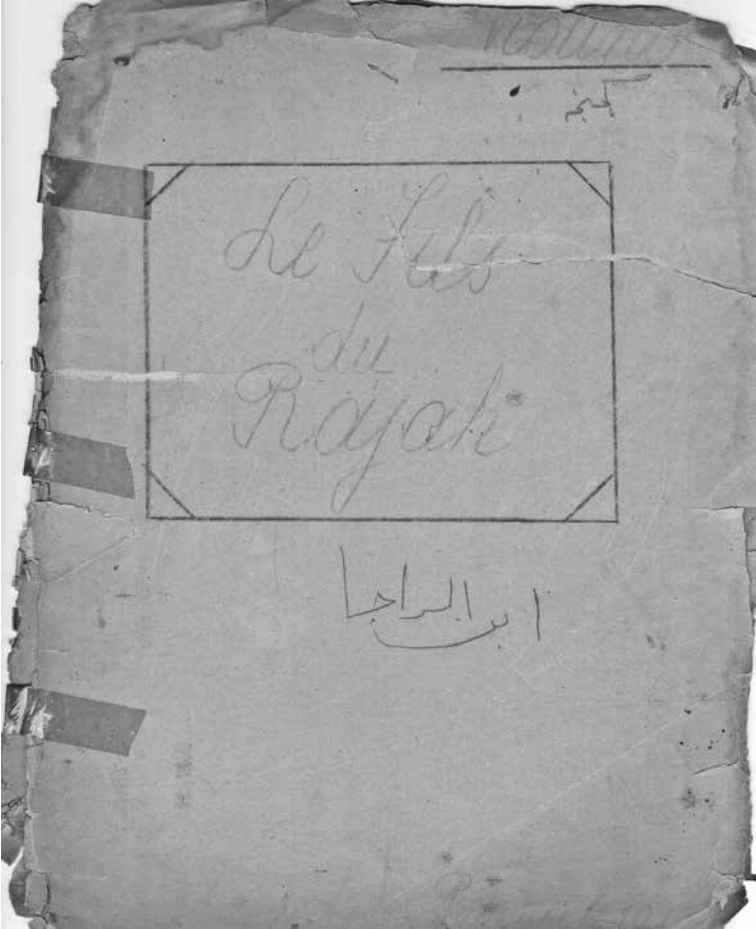 Le Fils
du
Rajah
ابن الراجا